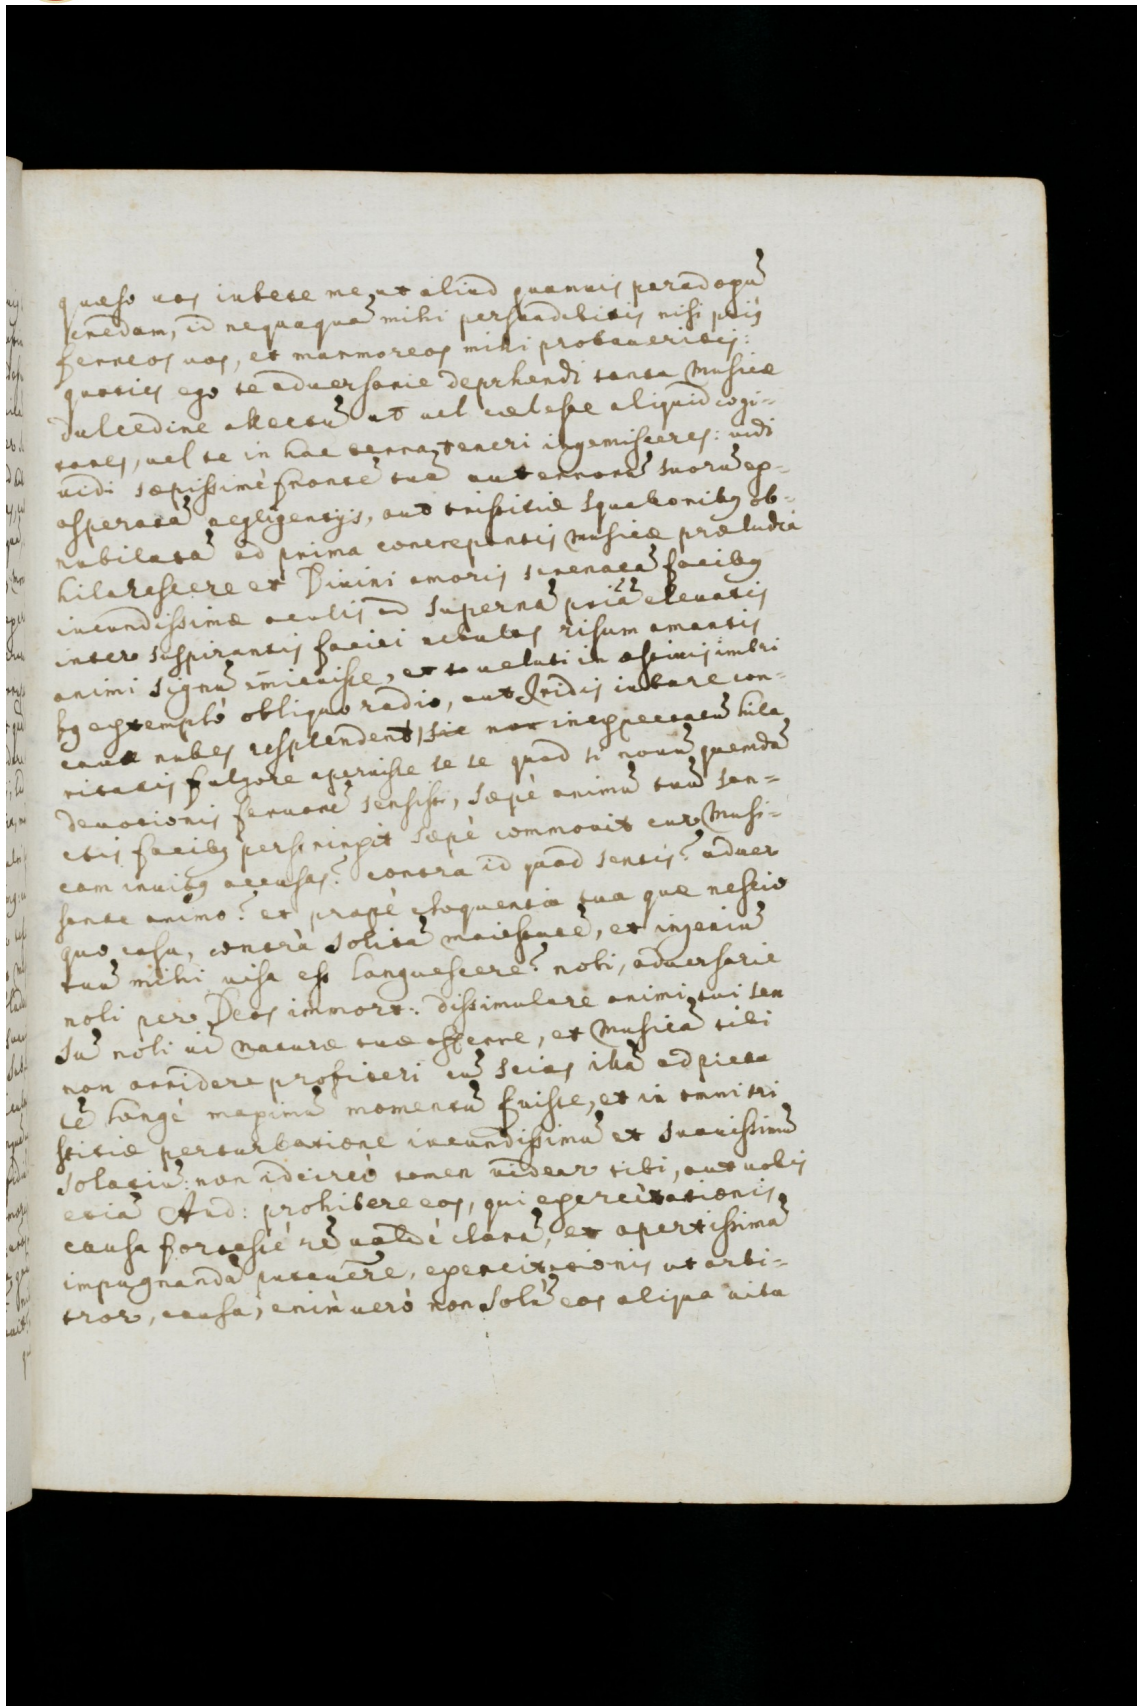 quæso uos iubete me, ut aliud quamuis paradoxũ
credam, id nequaquã mihi persuadebitis nisi priꝰ
ferreos uos, et marmoreos mihi probaueritis:
quoties ego te aduersarie deprhendi tanta Musicæ
dulcedine allectũ ut uel cæleste aliquid cogi-
tares, uel te in hac terra teneri ingemisceres: uidi
uidi sæpissimè frontẽ tuã aut errorũ suorũ ex-
asperatã negligentijs, aut tristitiæ squaloribꝰ ob-
nubilatã ad prima concrepantis Musicæ præludia
hilarescere et Diuini amoris serenatã facibꝰ
iucundissimæ oculis ad supernã priã eleuatis
inter suspirantis faciei nebulas risum amantis
animi signũ emicuisse, et te ueluti in æstiuis imbri
bꝰ extemplò obliquo radio, aut Iridis iubare con-
cauæ nubes resplendent, sic inexpectatũ hila
ritatis fulgore aperuisse te se quod si nouũ quemdã
deuotionis feruorẽ sensisti, sæpè animũ tuũ san-
ctis facibꝰ perstringit sæpè commouit cur Musi-
cam inuitꝰ accusas? contrà id quod sentis? aduer
sante animo? et propè eloquentia tua quæ nescio
quo casu, contrà solitã maiestatẽ, et ingeniũ
tuũ mihi uisa est languescere? noli, aduersarie
noli per Deos immort: dissimulare animi tui sen
sũ noli uĩ naturæ tuæ afferre, et Musicã tibi
non arridere profiteri cũ scias illã ad pieta
tẽ longè maximũ momentũ fuisse, et in omni tri
stitiæ perturbatione iucundissimũ et suauissimũ
solatiũ: non idcircò tamen uidear tibi, aut uobis
etiã Aud: prohibere eos, qui exercitationis
causa fortassè rẽ ualdè clarã, et apertissimã
impugnandã putauẽre, exercitationis ut arbi-
tror, causa, enim uerò non solũ eos aliqua uitu